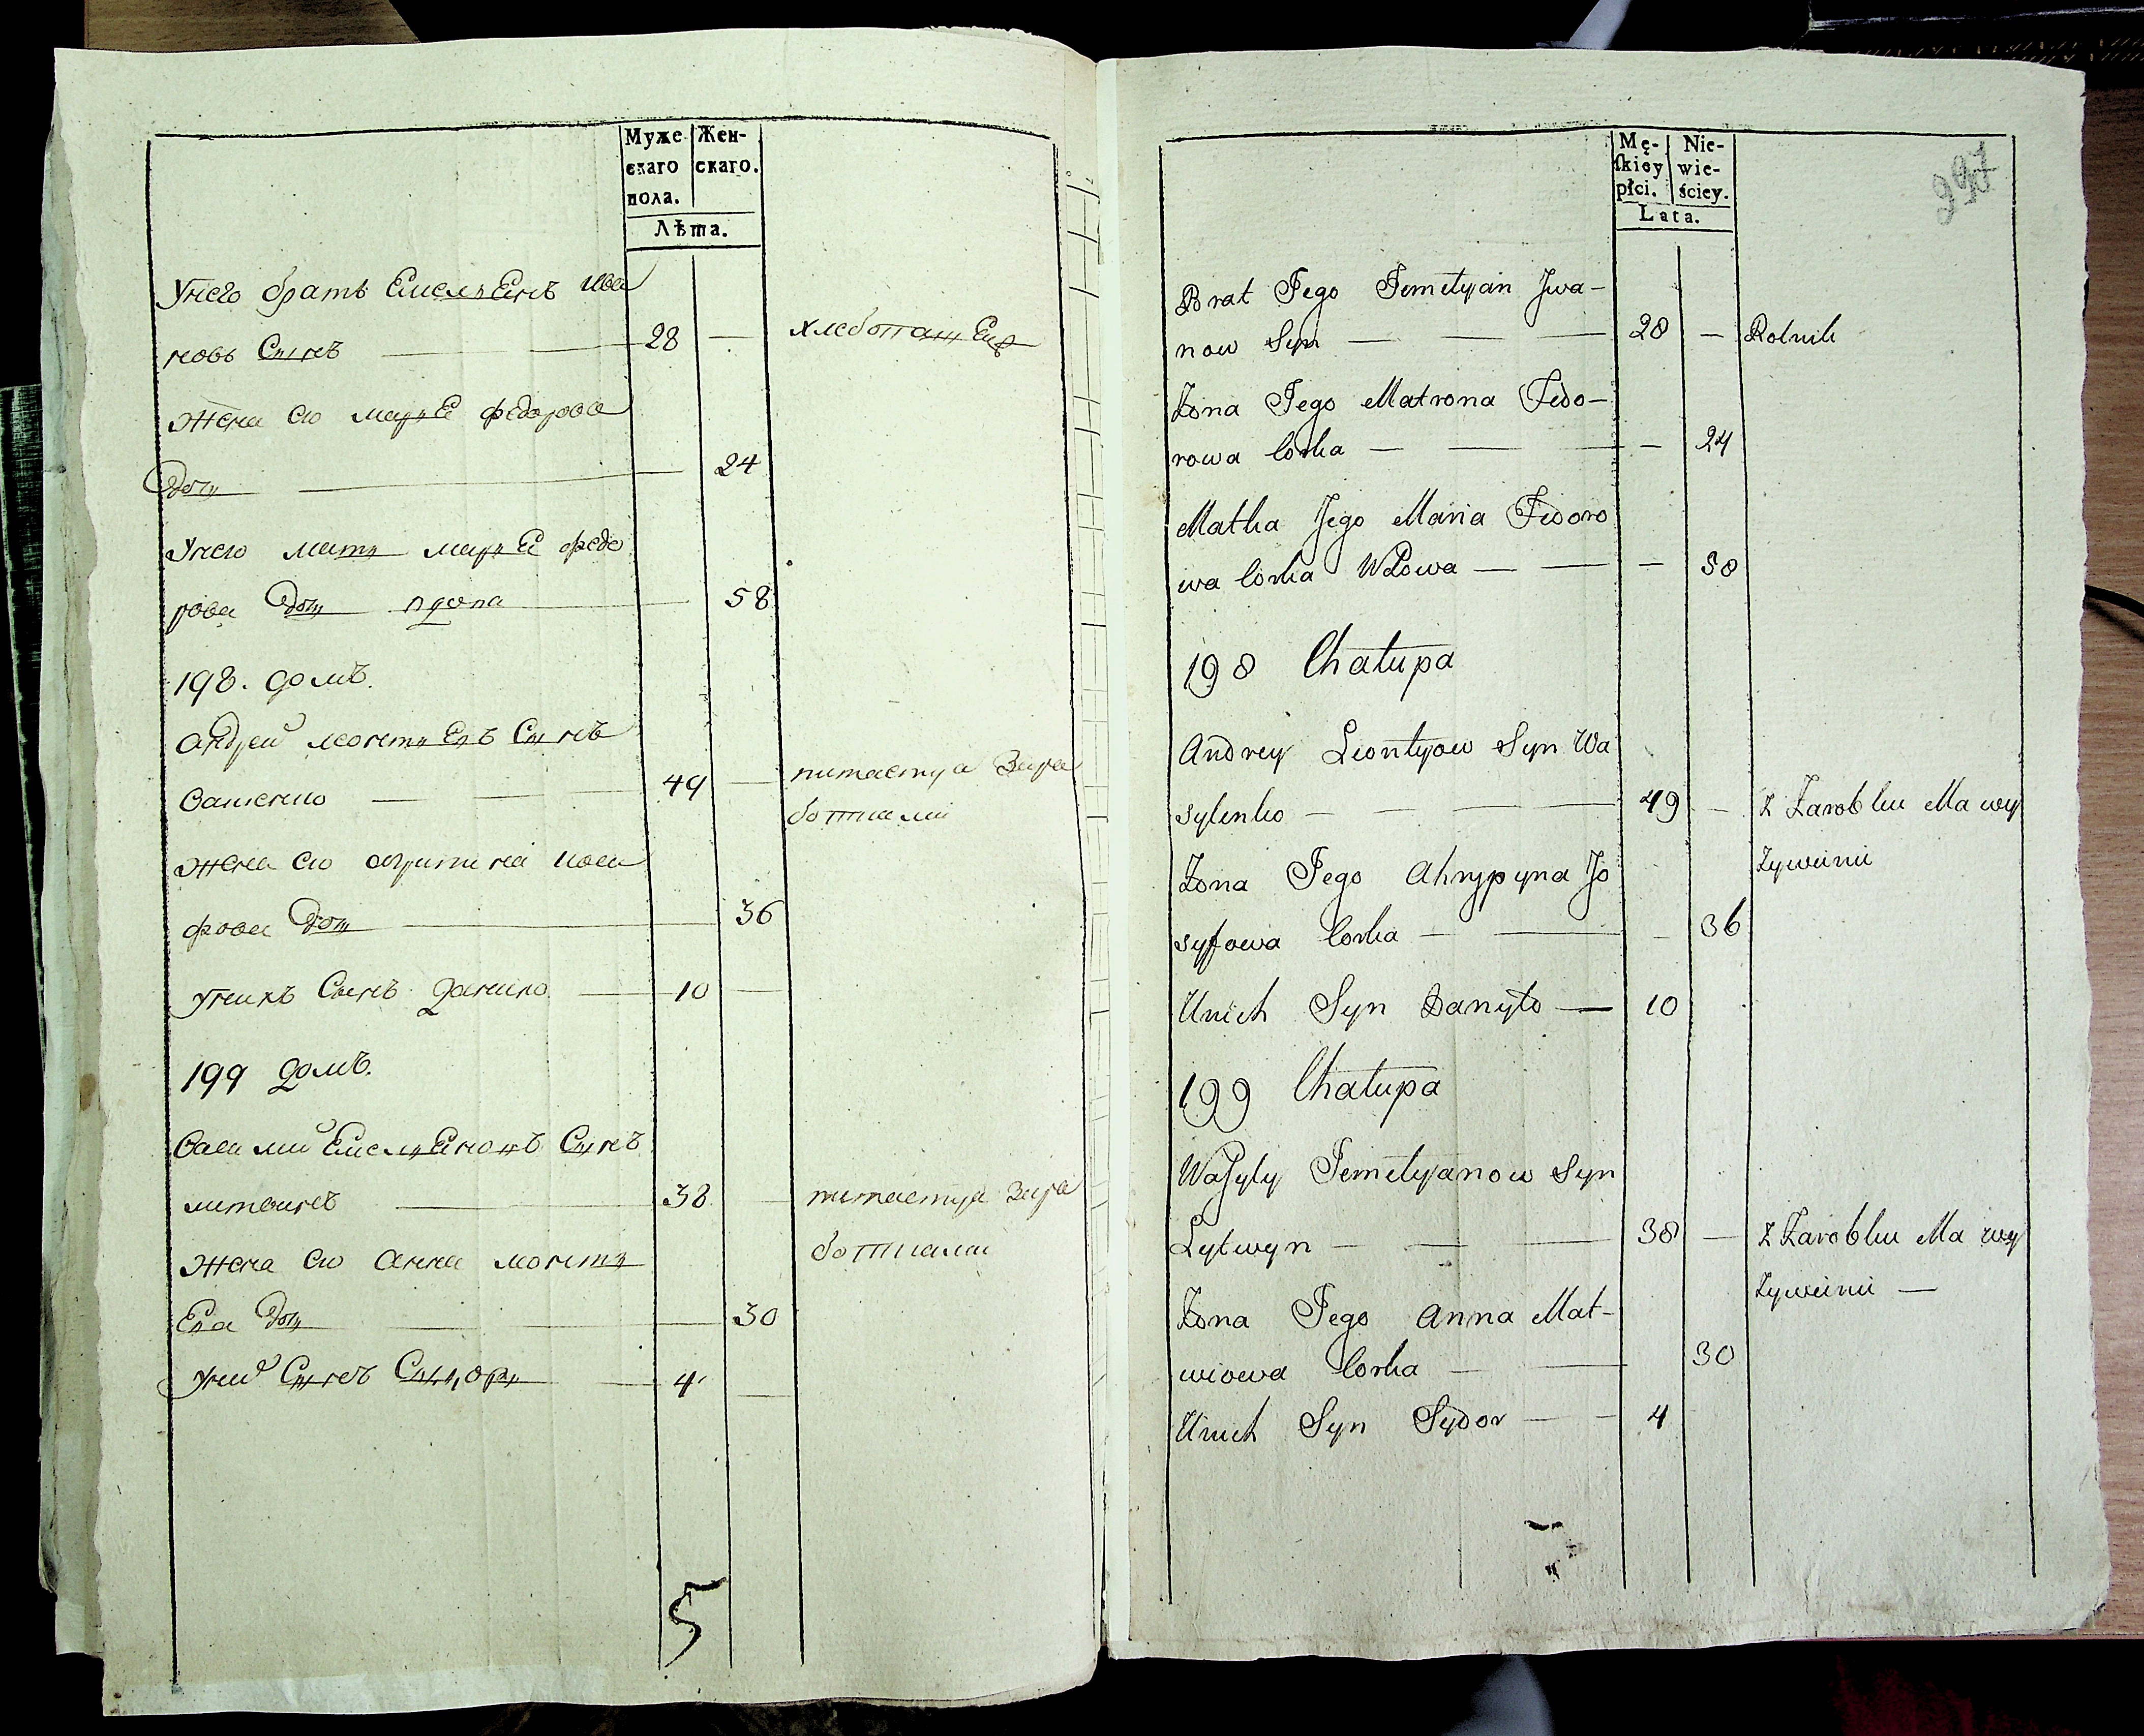 Муже Жен-
скаго скаго.
пола.
Лѣта.
У него братъ Емельянъ Ива
новъ Сынъ — 28 — хлебопашец
Жена его Федорова
Дочь — 24
У него мать Марья Федо
рова Дочь вдова — 58
198. домъ.
Андрей Леонтьевъ Сынъ
Василенко — 49 — питается зара
ботками
Жена его Агрипина Иоси
фова Дочь — 36
У нихъ Сынъ Данило — 10 —
199 домъ.
Василий Емельяновъ Сынъ
Литвинъ — 38 — питается зара
ботками
Жена его Анна
Дочь — 30
Сынъ — 4 —
5
Mę- Nie-
skiey wie-
płci. ściey.
Lata.
297
Brat Jego Jemelyan Jwa-
now Syn — 28 — Rolnik
Zona Jego Matrona Fedo-
rowa Corka — — 24
Matka Jego Maria Fedoro
wa Corka Wdowa — — 58
198 Chałupa
Andrey Leontyow Syn Wa
sylenko — 49 — z Zarobku Ma wy
Zywienie
Zona Jego Ahrypyna Jo
syfowa Corka — — 36
Unich Syn Danyło — 10
199 Chałupa
Wasyly Jemelyanow Syn
Lytwyn — 38 — z Zarobku Ma wy
Zywienie —
Zona Jego Anna Mat-
wiowa Corka — 30
Unich Syn Sydor — 4